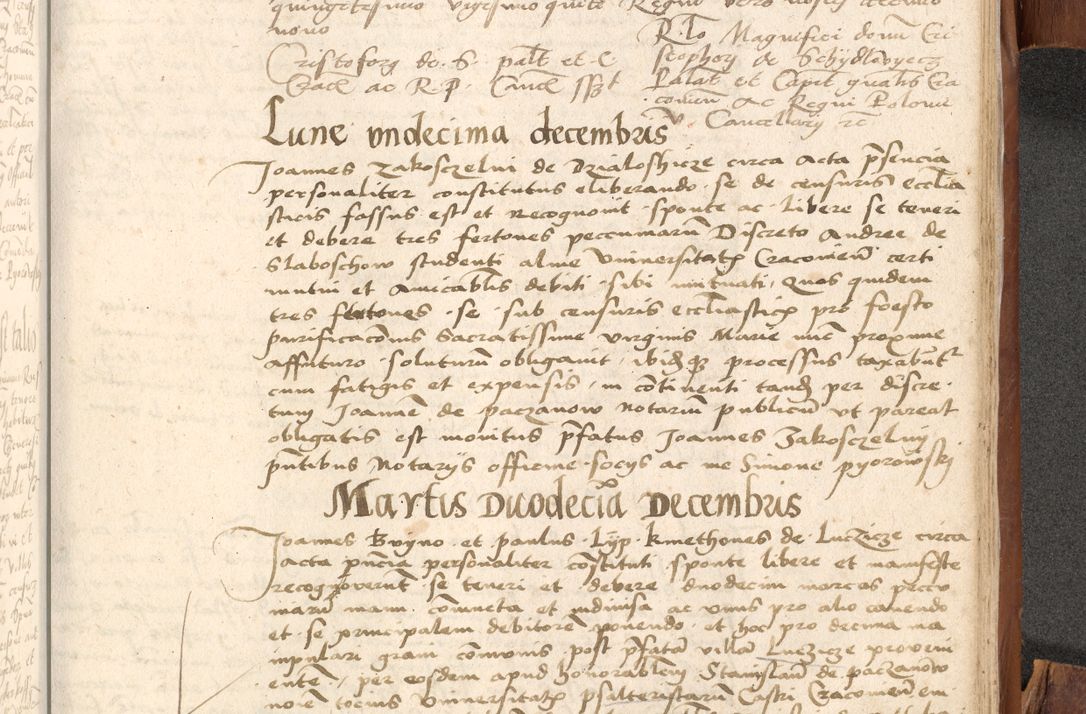 quingetesimo vigesimo quito Regni vero nostri decimo
nono
Cristoforg de S. palt et C
Crac ac R. P. Canc sspt
R.lo Magnifici domi Cri
stophory de Schydlovyecz
Palat et Capit gnalis Cra
comen ac Regni Polonie
Cancellary rc
Lune vndecima decembris
Joannes Zakosczelni de Dzialoshicze circa Acta psencia
personaliter constitutus eliberando se de censuris ecclia
sticis fassus est et recognouit sponte ac libere se teneri
et debere tres fertones peccuniarum Discreto Andree de
Slaboschow studenti alme Vniuersitatis Cracouien certi
mutui et amicablis debiti sibi mutuati, Quos quidem
tres fertones se sub censuris ecclasticis pro foesto
purificaconis Sacratissime virginis Marie nuc proxime
affuturo soluturum obligauit, ibidq processus taxabunt
cum fatigis et expensis, in continenti tand per discre
tum Joanne de paczanow Notarium publicu vt pareat
obligatis est monitus pfatus Joannes Zakosczelny
pntibus Notarys officine socys ac me Simone pyorowski
Martis Duodecia Decembris
Joannes Bryno et paulus Lyp kmethones de Luczicze circa
acta pncia personaliter constituti sponte libere et manifeste
recognouerunt se teneri et debere duodecim marcas peccu
niaru manu comuncta et indiuisa ac vnus pro alio cauendo
et se principalem debitore ponendo et hoc pro decima ma
nipulari gram comonis post pfata villa Luczicze proueni
ente, per eosdem apud honorabilem Stanislau de paczanow
noie tocius Vniuersitatis psalteristarum Castri Cracouien em